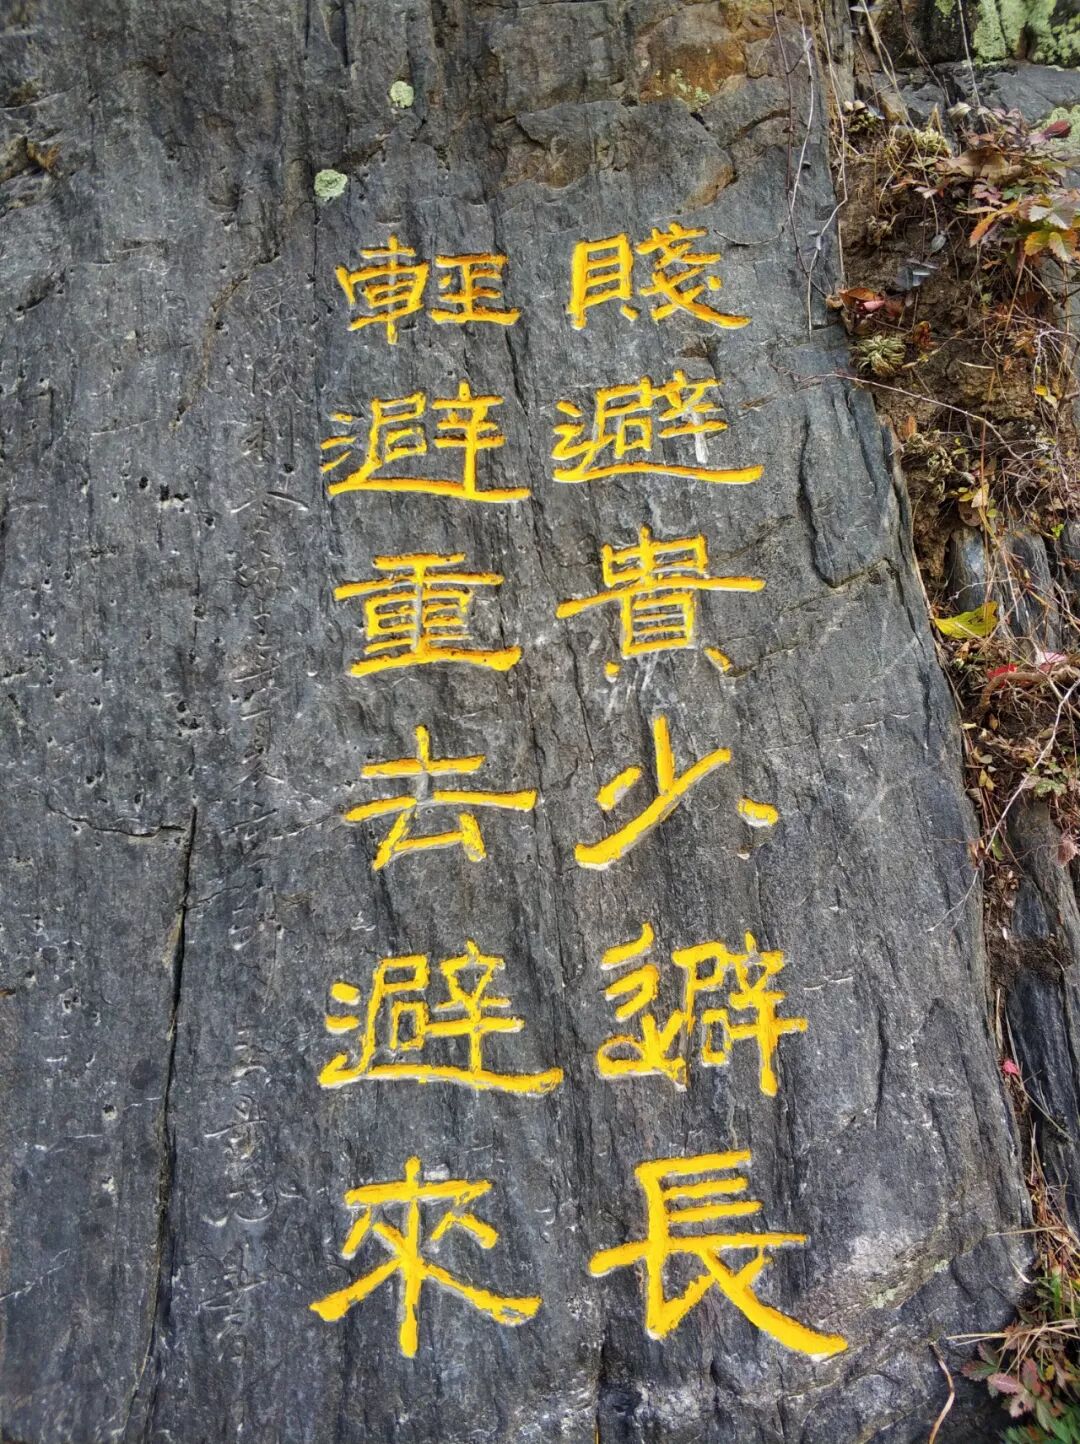 賤避貴少避長
輕避重去避來